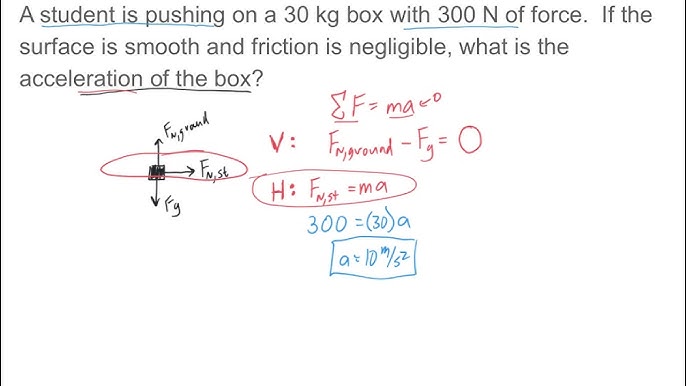 A student is pushing on a 30 kg box with 300 N of force.  If the
surface is smooth and friction is negligible, what is the
acceleration of the box?
ΣF = ma 0
F_N,ground
V: F_N,ground - F_g = 0
F_N,st
H: F_N,st = ma
F_g
300 = (30) a
a = 10 m/s²